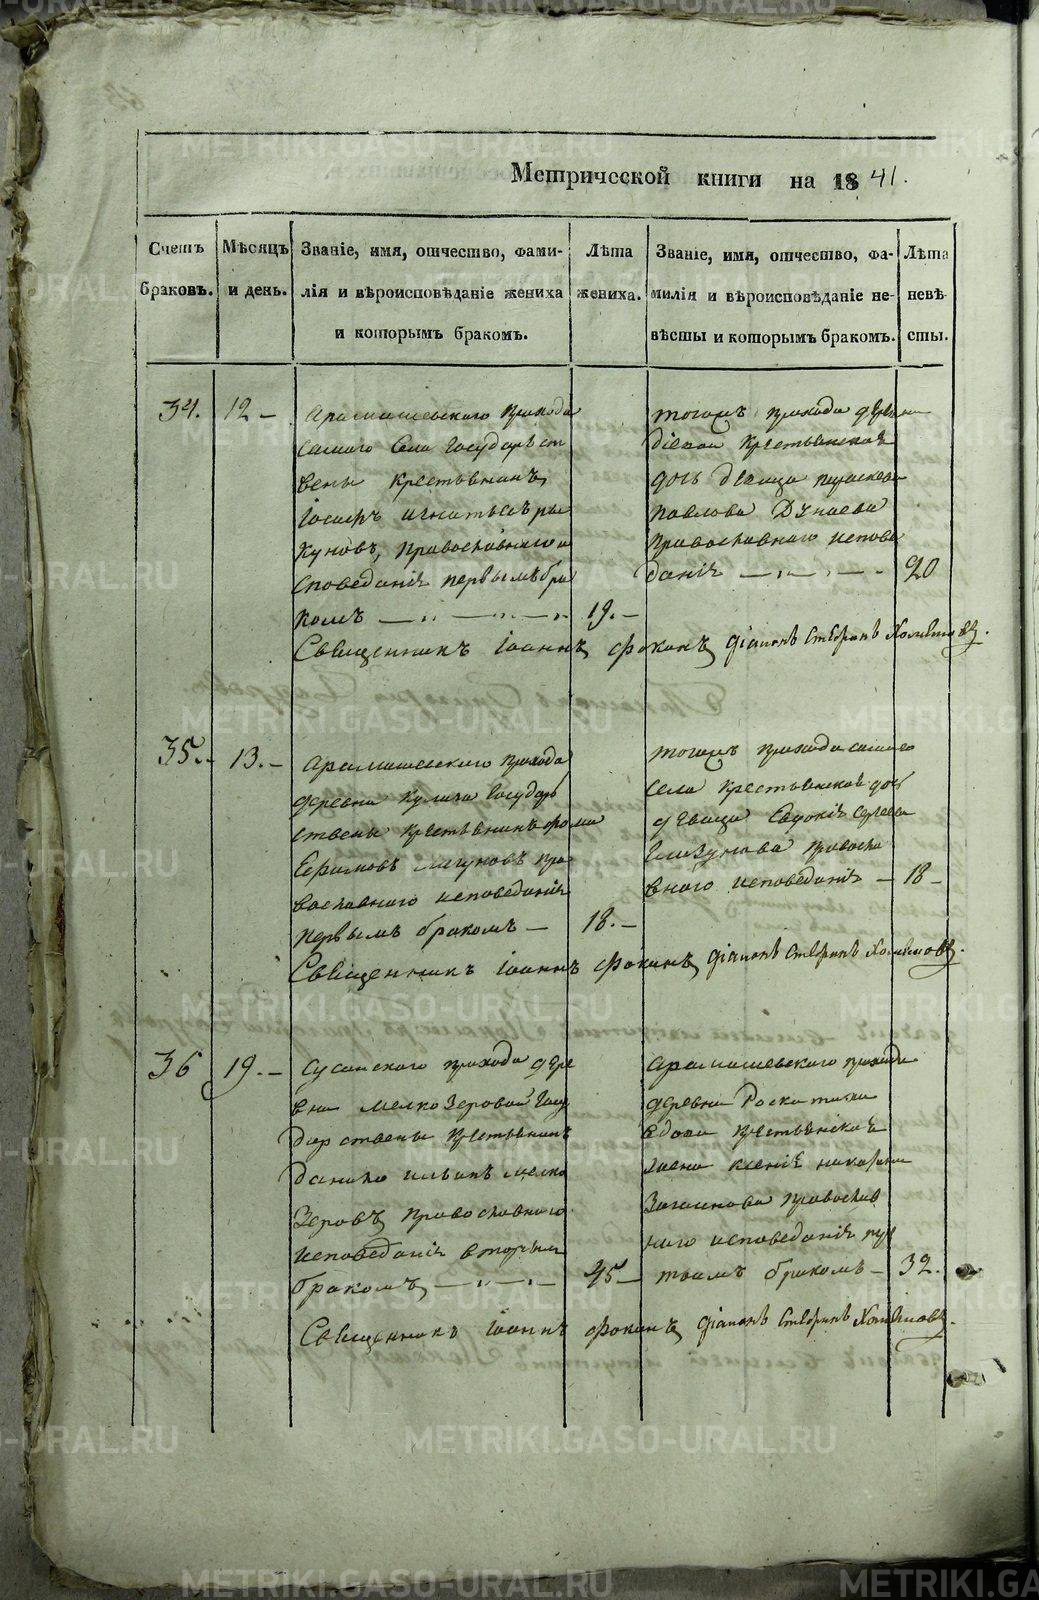 Метрической книги на 1841.
Счетъ браковъ.
Мѣсяцъ и день.
Званіе, имя, отчество, фами-
лія и вѣроисповѣданіе жениха
и которымъ бракомъ.
Лѣта жениха.
Званіе, имя, отчество, фа-
милія и вѣроисповѣданіе не-
вѣсты и которымъ бракомъ.
Лѣта невѣ-
сты.
34. 12 –
Арамашевскаго прихода
самаго села Государст
вены крестьянинъ
Іосифъ Игнатьевъ ры
куновъ, православнаго и
споведанія первымъ бра
комъ
19. –
тогожъ прихода
крестьянская
дочь девица
павлова Дунаева
православнаго испове
данія
20
Священникъ Іоаннъ Фокинъ діаконъ Стефанъ Холемовъ.
35. – 13. –
Арамашевскаго прихода
деревни Кулига Государ
ствены крестьянинъ фома
Ефимовъ мигуновъ пра
вославнаго исповеданія
первымъ бракомъ –
18. –
тогожъ прихода самаго
села крестьянская дочь
девица Евдокія Сергеева
Глазунова правосла
внаго исповеданія –
18 –
Священникъ Іоаннъ Фокинъ діаконъ Стефанъ Холемовъ.
36 19. –
Сусанского прихода дере
вни мелкозеровой Госу
дарствены крестьянинъ
Данило ильинъ мелко
зеровъ православнаго
исповеданія вторым
бракомъ
45 –
Арамашевскаго прихода
деревни Роскатиха
вдова крестьянская
жена ксенія
православ
наго исповеданія
тьимъ бракомъ –
32.
Священникъ Іоаннъ Фокинъ діаконъ Стефанъ Холемовъ.
METRIKI.GASO-URAL.RU